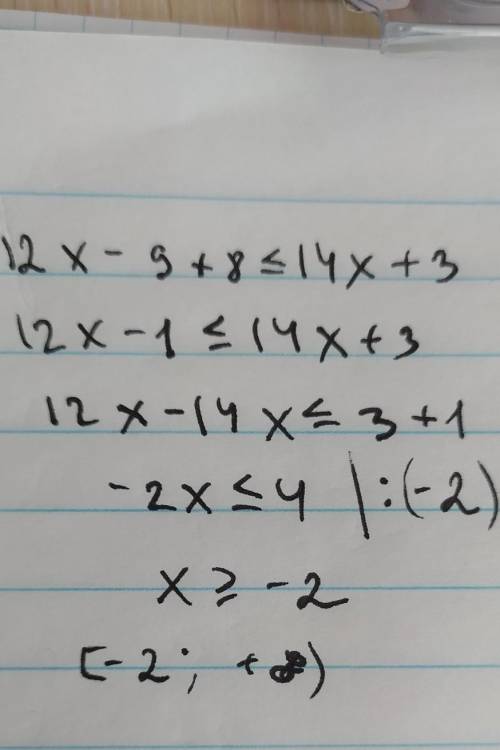 12x - 9 + 8 ≤ 14x + 3
12x - 1 ≤ 14x + 3
12x - 14x ≤ 3 + 1
-2x ≤ 4 | : (-2)
x ≥ -2
[-2; +∞)